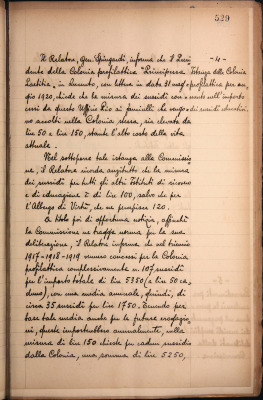 529
Il Relatore, Gen. Spingardi, informa che il Presi
dente della Colonia profilattica "Principessa
Laetitia", in Levanto, con lettera in data 31 mag
gio 1920, chiede che la misura dei sussidi con
cessi da questo Ufficio Pio ai fanciulli che vengo
no accolti nella Colonia stessa, sia elevata da
lire 50 a lire 150, stante l'alto costo della vita
attuale.
- 4 -
Istanza della Colonia
profilattica per au
mento nell'importo
dei sussidi
Nel sottoporre tale istanza alla Commissio
ne, il Relatore ricorda anzitutto che la misura
dei sussidi per tutti gli altri Istituti di ricovero
e di educazione è di lire 100, salvo che per
l'Albergo di Virtù, che ne percepisce 120.
A titolo poi di opportuna notizia, affinchè
la Commissione ne tragga norma per la sua
deliberazione, il Relatore informa che nel triennio
1917-1918-1919 vennero concessi per la Colonia
profilattica complessivamente n. 107 sussidi
per l'importo totale di lire 5350 (a lire 50 ca
duno), con una media annuale, quindi, di
circa 35 sussidi per lire 1750. Tenendo per
base tale media anche per le future erogazio
ni, queste importerebbero annualmente, nella
misura di lire 150 chieste per cadun sussidio
dalla Colonia, una somma di lire 5250,